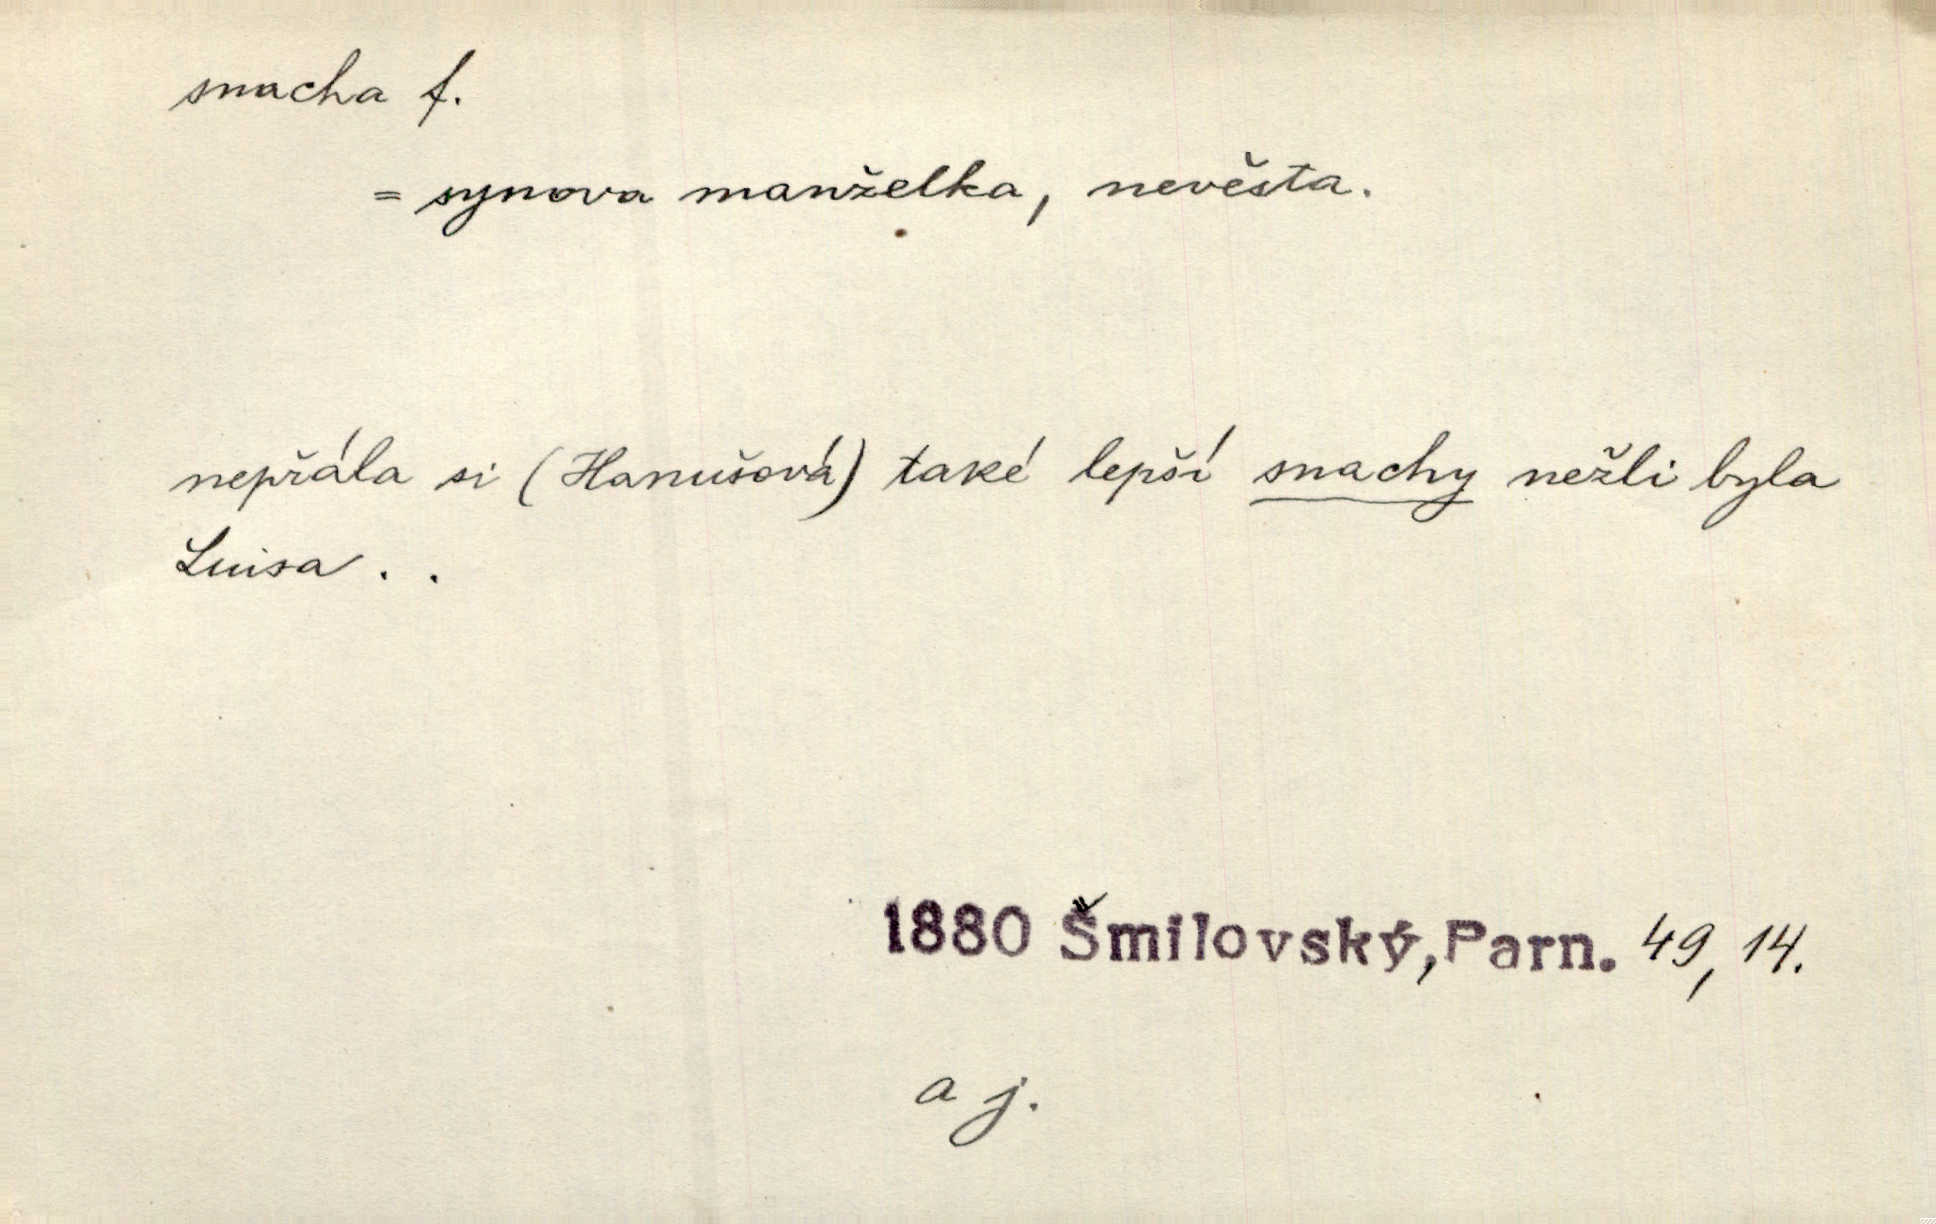 snacha f.
= synova manželka, nevěsta.
nepřála si (Hanušová) také lepší snachy nežli byla
Luisa . .
1880 Šmilovský, Parn. 49, 14.
a j.